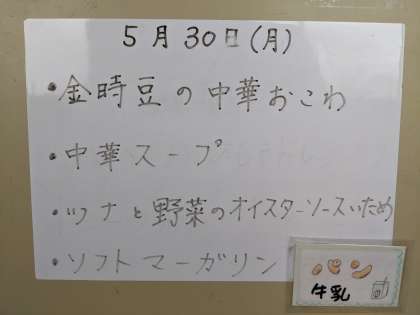 5月30日(月)
・金時豆の中華おこわ
・中華スープ
・ツナと野菜のオイスターソースいため
・ソフトマーガリン
パン
牛乳